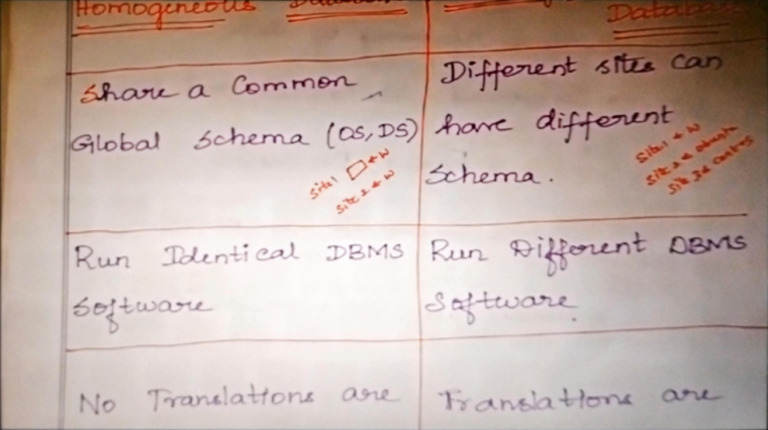 Homogeneous Database
Database
Share a Common
Global Schema (OS, DS)
Site 1 ← W
Site 2 ← W
Different sites can
have different
Schema.
Site 1 ← W
Site 2 ← ubuntu
Site 3 ← centos
Run Identical DBMS
Software
Run Different DBMS
Software.
No Translations are
Translations are